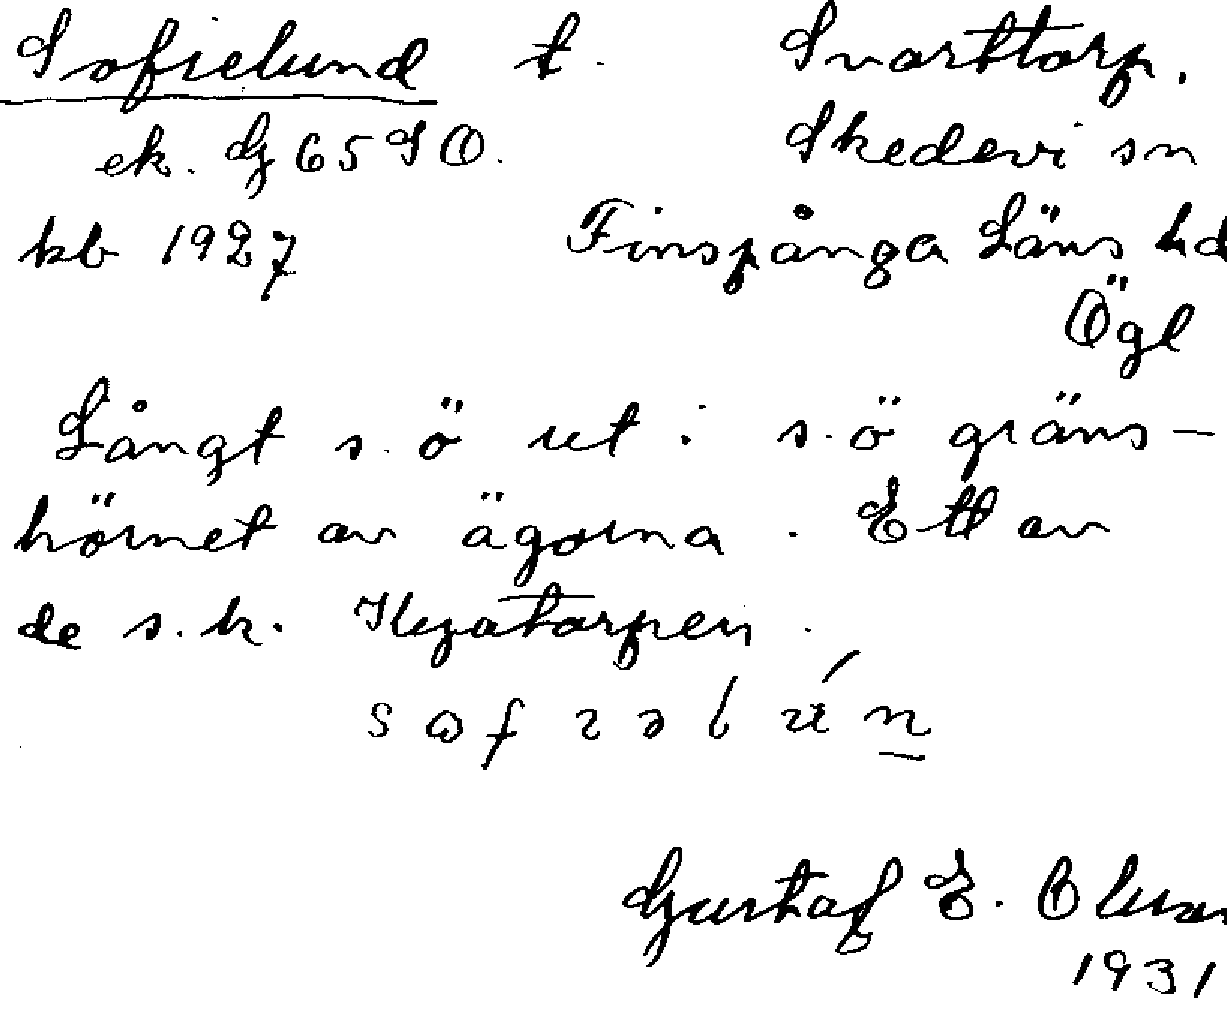 Sofielund t. Svarttorp.
ek. G 65 SO. Skedevi sn
kb 1927 Finspånga Läns hd
Ögl
Långt s. ö ut i s. ö gräns-
hörnet av ägorna. Ett av
de s. k.
Gustaf E.
1931